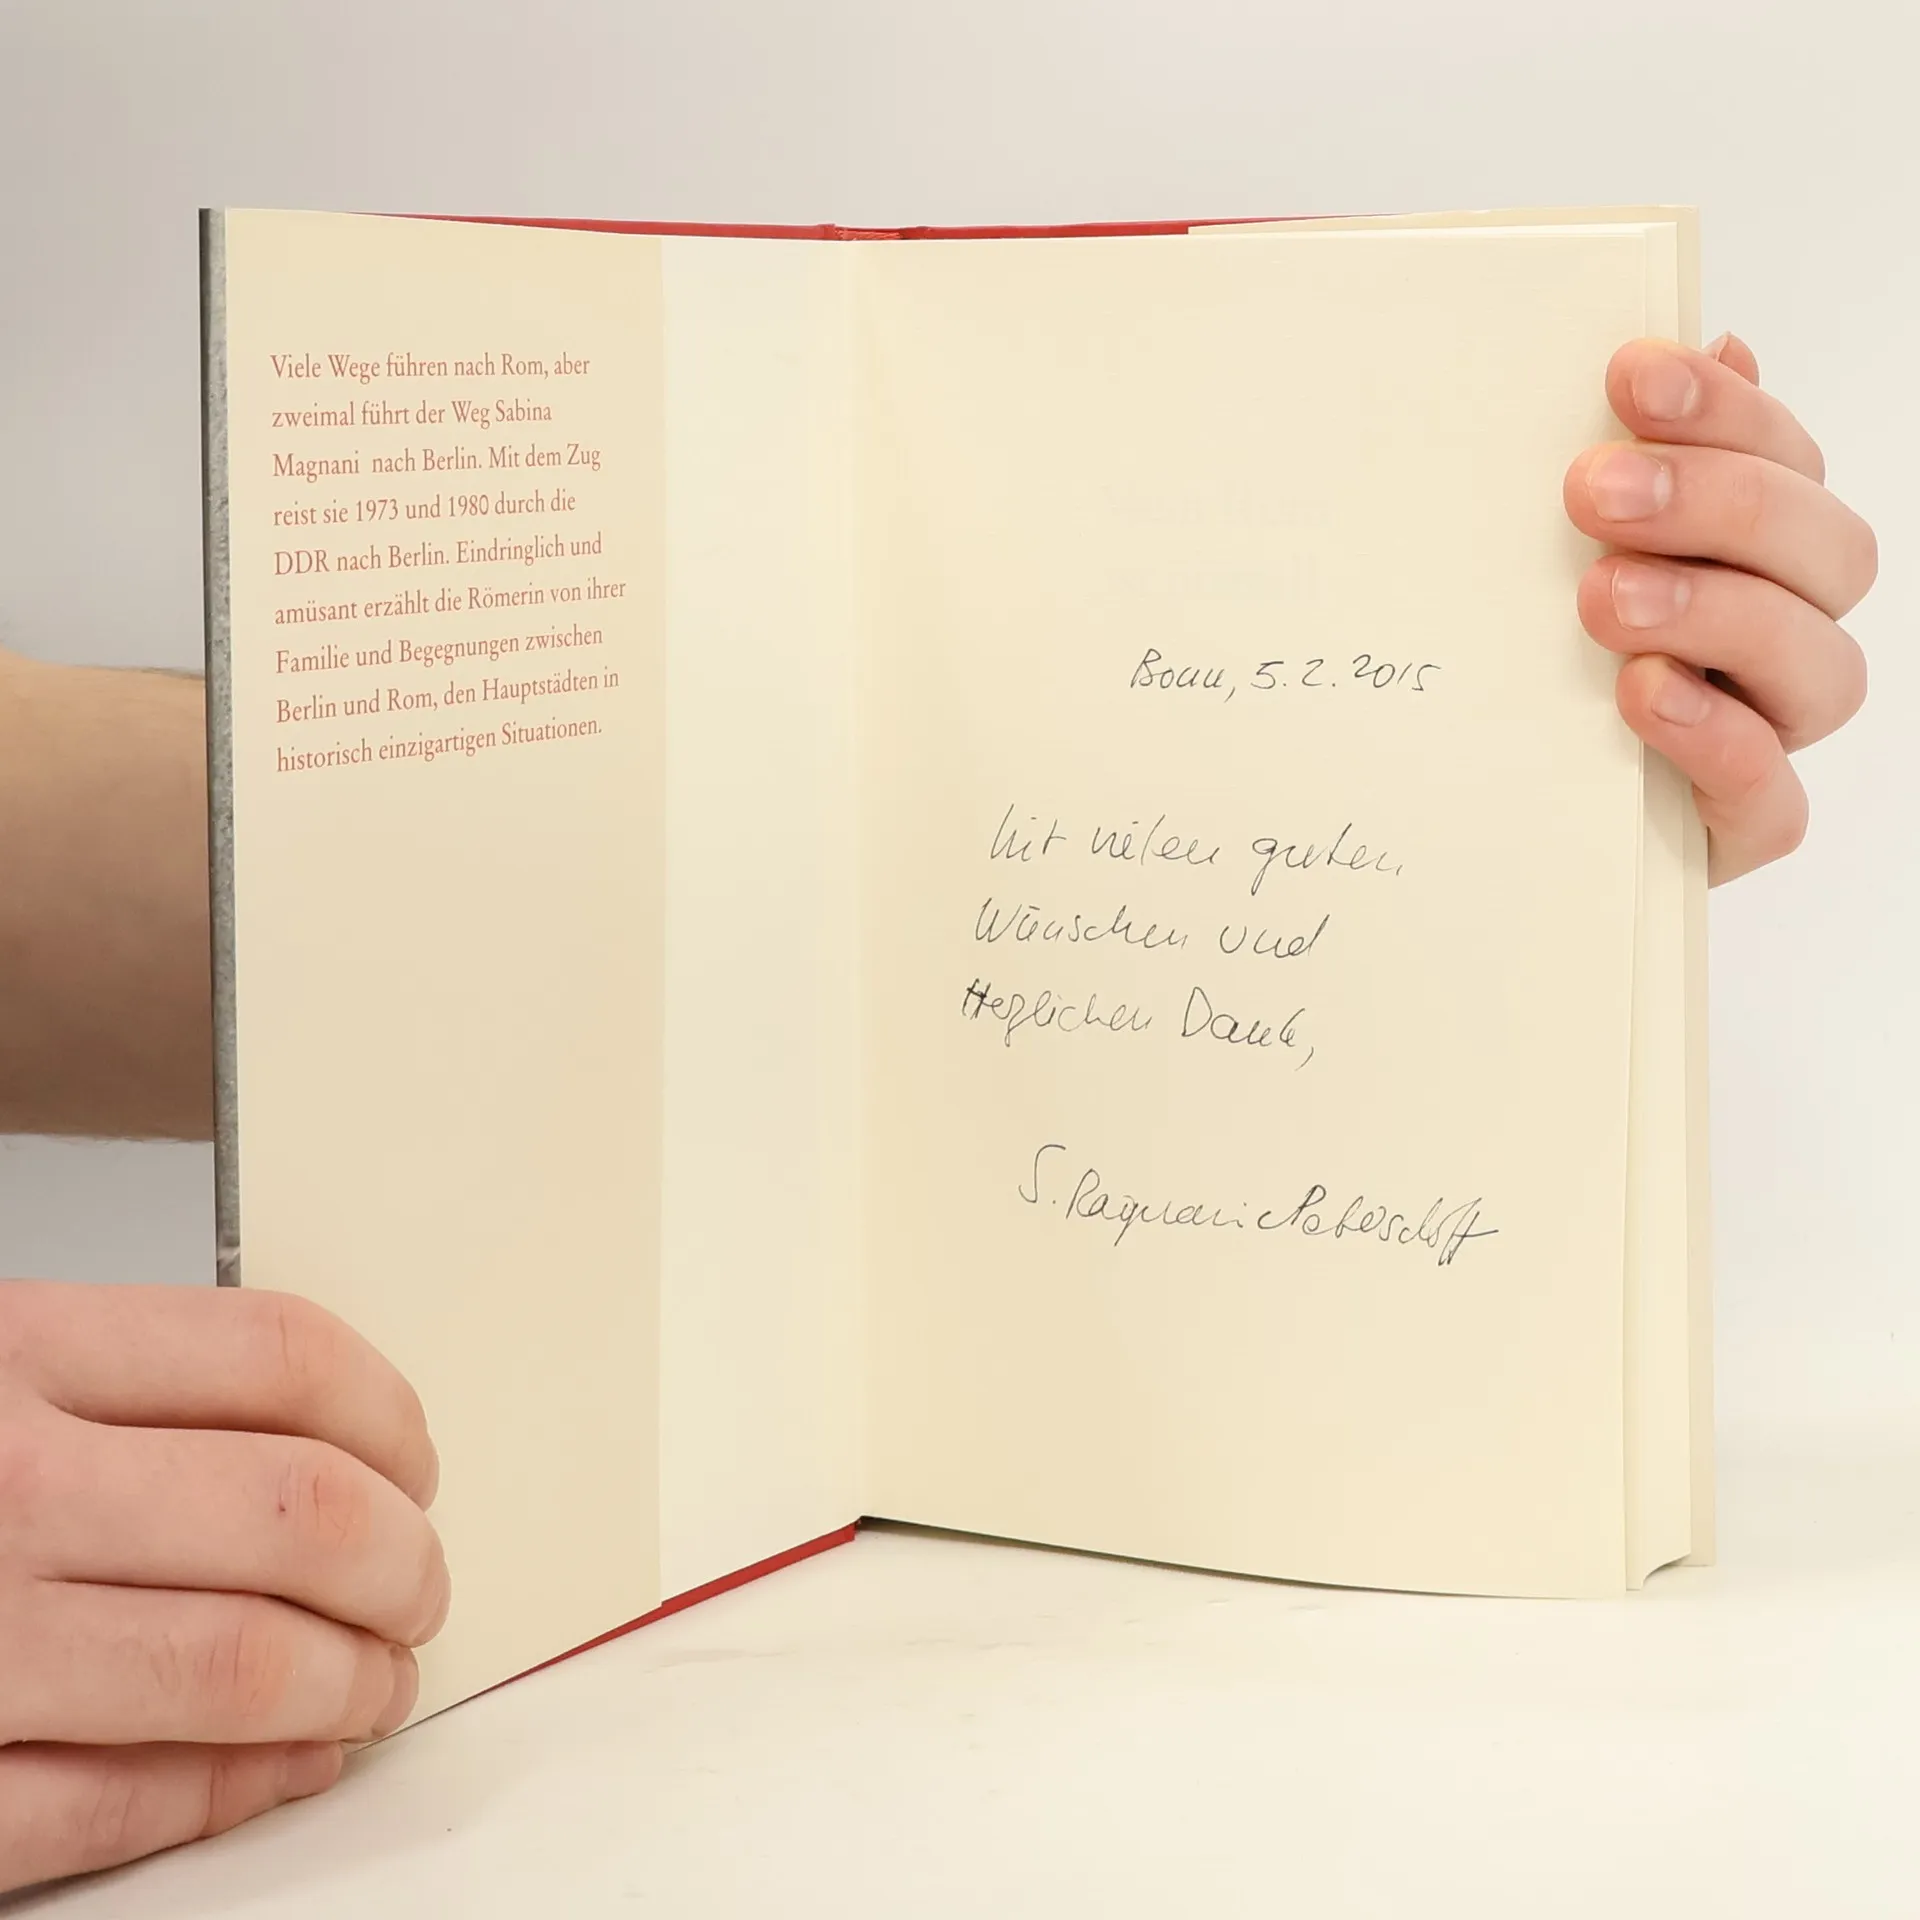 Viele Wege führen nach Rom, aber
zweimal führt der Weg Sabina
Magnani nach Berlin. Mit dem Zug
reist sie 1973 und 1980 durch die
DDR nach Berlin. Eindringlich und
amüsant erzählt die Römerin von ihrer
Familie und Begegnungen zwischen
Berlin und Rom, den Hauptstädten in
historisch einzigartigen Situationen.
Bonn, 5.2.2015
Mit vielen guten
Wünschen und
Herzlichen Dank,
S.